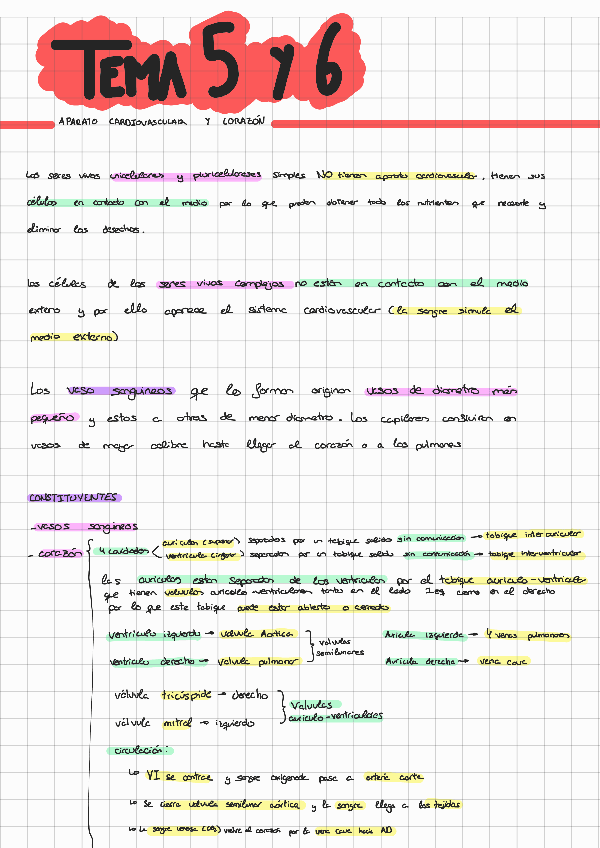 TEMA 5 y 6
APARATO CARDIOVASCULAR Y CORAZÓN
Los seres vivos unicelulares y pluricelulares simples NO tienen aparato cardiovascular, tienen sus
células en contacto con el medio por lo que pueden obtener todo los nutrientes que necesite y
eliminar los desechos.
Las células de los seres vivos complejos no están en contacto con el medio
externo y por ello aparece el sistema cardiovascular (la sangre simula el
medio externo)
Los vaso sanguineos que lo forman originan vasos de diametro más
pequeño y estos a otros de menor diametro. Los capilares confluiran en
vasos de mayor calibre hasta llegar al corazón o a los pulmones
CONSTITUYENTES
- vasos sanguineos
- corazón
4 cavidades
auriculas (superior) separadas por un tabique solido sin comunicación → tabique inter auricular
ventriculos (inferior) separados por un tabique solido sin comunicación → tabique interventricular
las auriculas estan separadas de los ventriculos por el tabique auriculo-ventricular
que tienen valvulas auriculo ventriculares tanto en el lado Izq como en el derecho
por lo que este tabique puede estar abierto o cerrado
ventriculo izquierdo → valvula Aortica
ventriculo derecho → valvula pulmonar
valvulas
semilunares
Auricula izquierda → 4 venas pulmonares
Auricula derecha → vena cava
válvula tricúspide → derecho
válvula mitral → izquierdo
Valvulas
auriculo-ventriculares
circulación:
↳ VI se contrae y sangre oxigenada pasa a arteria aorta
↳ se cierra valvula semilunar aórtica y la sangre llega a los tejidos
↳ La sangre venosa (CO2) vuelve al corazón por la vena cava hacia AD